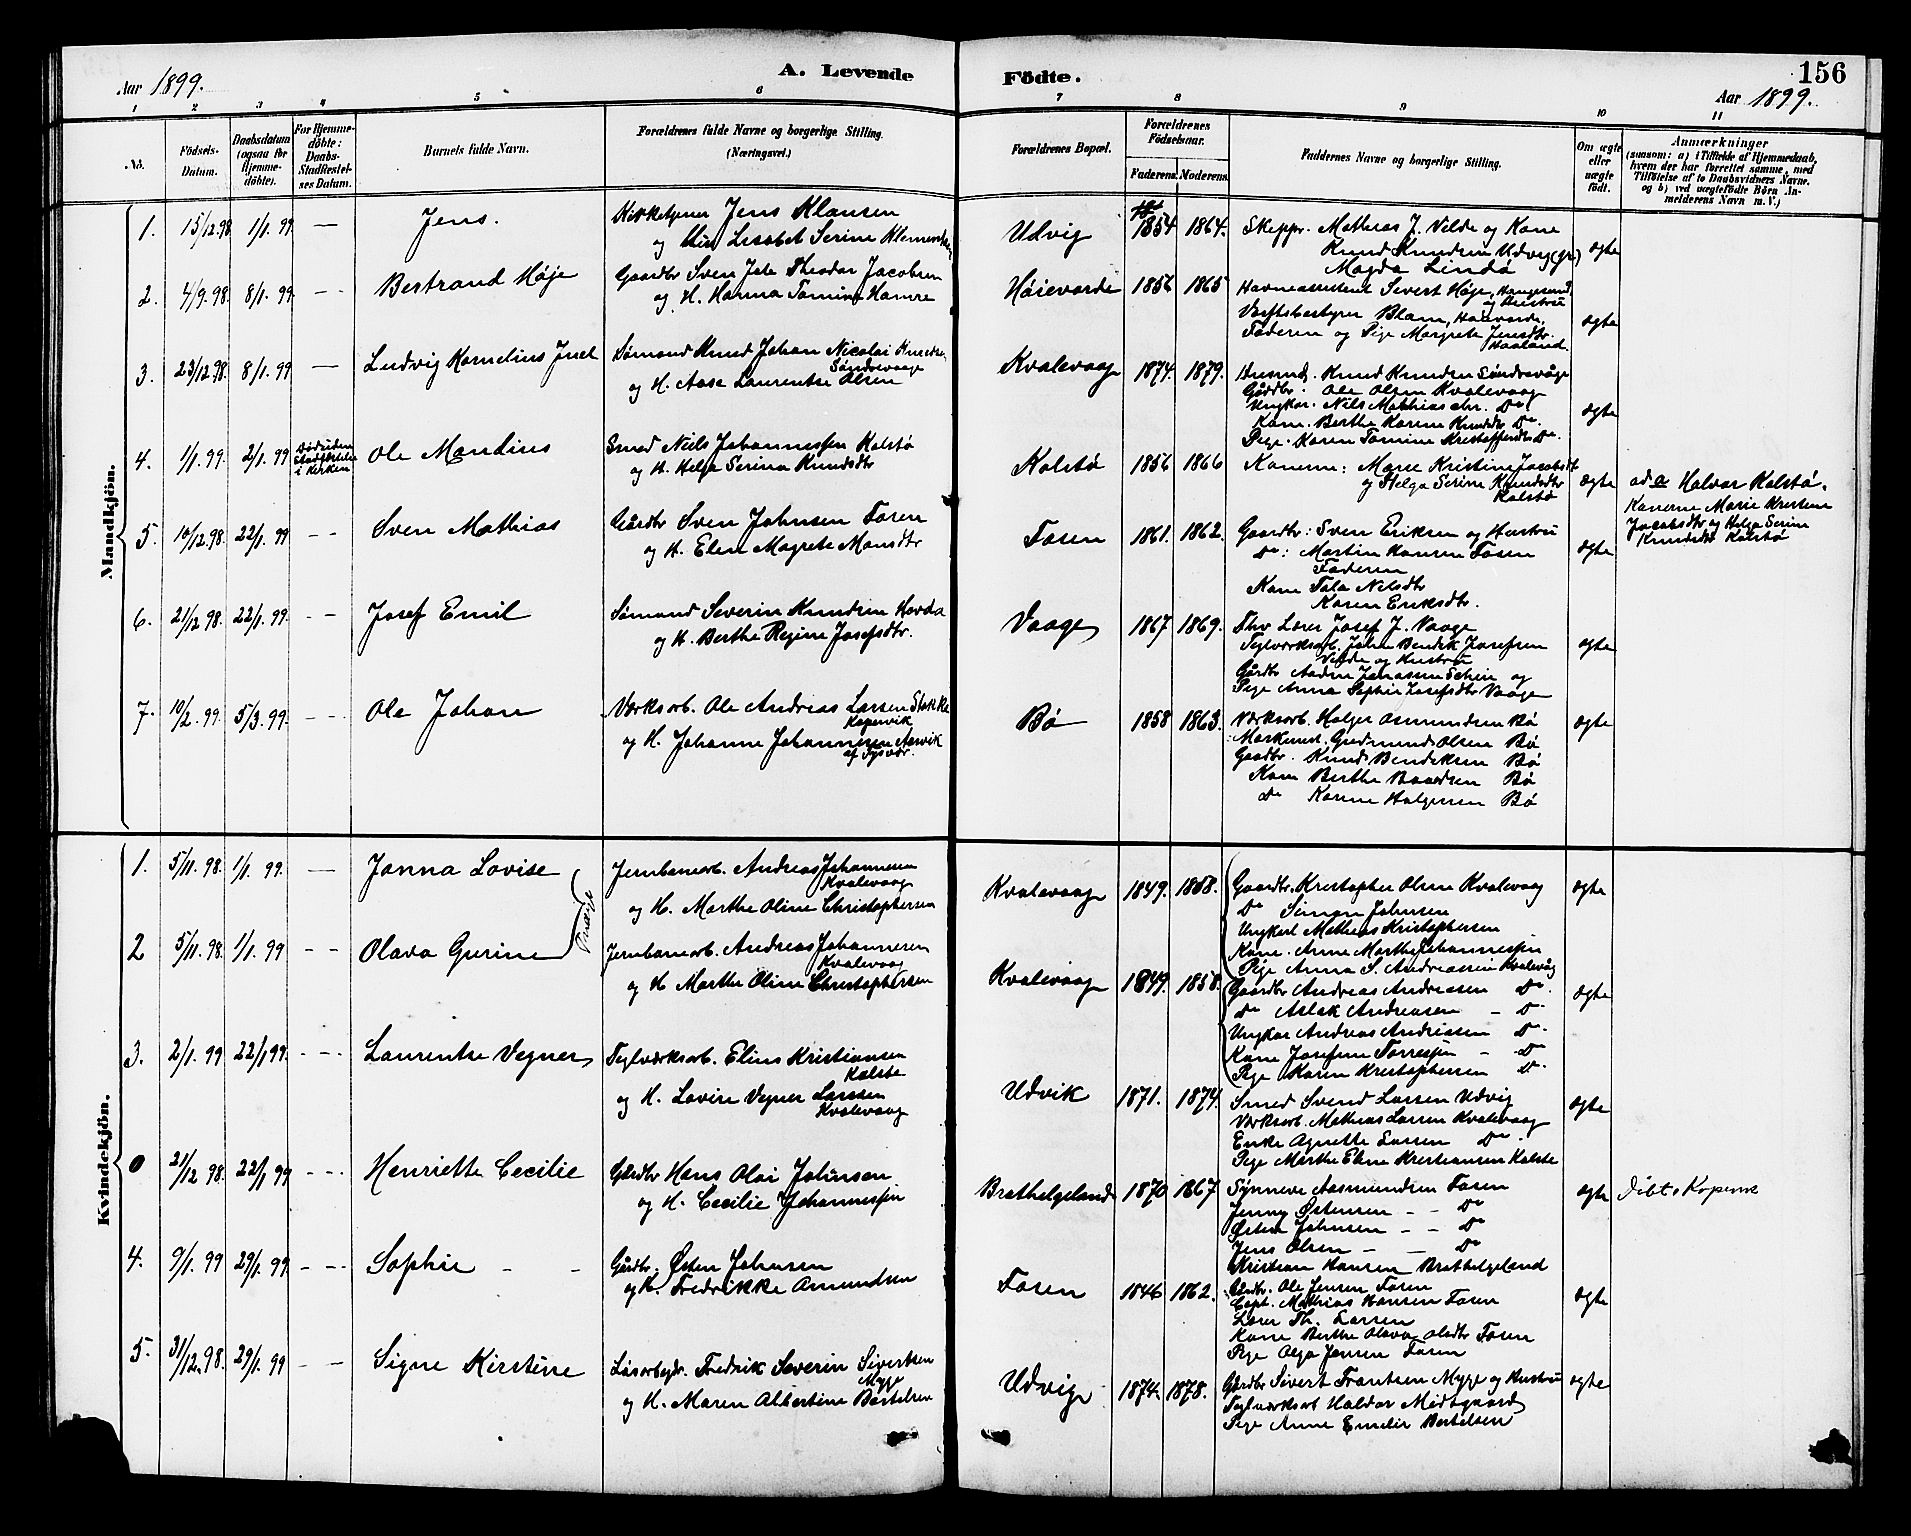 Aar 1899.
A. Levende
Födte.
Aar 1899.
156
1 2 3 4 5 6 7 8 9 10 11
No.
Födsels-
Datum.
Daabsdatum
(ogsaa for
Hjemme-
döbte).
For Hjemme-
döbte:
Daabs-
Stadfestel-
ses Datum.
Barnets fulde Navn.
Forældrenes fulde Navne og borgerlige Stilling.
(Næringsvei.)
Forældrenes Bopæl.
Forældrenes
Födselsaar.
Faderens. Moderens.
Faddernes Navne og borgerlige Stilling.
Om ægte
eller
uægte
födt.
Anmærkninger
(saasom: a) i Tilfælde af Hjemmedaab,
hvem der har forrettet samme, med
Tilföielse af to Daabsvidners Navne.
og b) ved uægtefödte Börn An-
melderens Navn m. V.)
Mandkjön.
1. 15/12.98. 1/1. 99 — Jens.
Kirketjener Jens Klausen
og Lisabet Serine
Udvig 1854 1864.
Skeppr. Mathias J. Velde og Kone
Knud Knudsen Udvig
Magda Lindø
ægte
2. 4/9.98. 8/1. 99. - - Bertrand Høje
Gaardbr Sven Jale Theodor Jacobsen
og H. Hanna Tomine Hamre
Høievarde 1856 1865
Havneassistent Sivert Høje, Haugesund
og Hustru
Værftsbestyrer Blam, Haavarde,
Faderen og Pige Margrete Jensdtr.
Haaland.
ægte
3. 23/12.98. 8/1. 99 — Ludvig Kornelius Juel
Sømand Knud Johan Nicolai Knudsen
Søndrevaage
og H. Aase Laurentse Olsen
Kvalevaag 1874. 1879.
Husmd. Knud Knudsen Søndrevåge
Gårdbr. Ole Olsen Kvalevaag
Ungkar. Nils Mathias chr. Do.
Kone. Berthe Karine Knudsdtr Do.
Pige. Karen Tomine Kristoffersdtr Do.
ægte
4. 1/1. 99. 2/1. 99
i Kirken
Ole Mandius
Smed Niels Johannessen Kalstø
og H. Helga Serina Knudsdtr
Kalstø 1856 1866
Konerne: Marie Kristine Jacobsdt
og Helga Serine Knudsdtr
Kalstø
ægte
ad a Halvor Kalstø.
Konerne Marie Kristine
Jacobsdtr og Helga Serine
Knudsdtr Kalstø
5. 10/12.98. 22/1. 99 - - Sven Mathias
Gårdbr Sven Johnsen Fosen
og H. Elen Magrete Monsdtr
Fosen 1861. 1862.
Gaardbr: Sven Eriksen og Hustru
Do: Martin Hansen Fosen
Faderen
Kone Tala Nilsdtr
Karen Eriksdtr.
ægte
6. 21/12 98. 22/1. 99. - - Josef Emil
Sømand Severin Knudsen Hovda
og H. Berthe Regine Josefsdtr.
Vaage 1867 1869.
Fhv Lærer Josef J. Vaage
Teglværksarb. Johan Bendik Josefsen
Velde og Hustru
Gårdbr Aadne Jonassen og
Pige Anna Sophie Josefsdtr Vaage
ægte
7. 10/2. 99. 5/3. 99. - - Ole Johan
Værksarb. Ole Andreas Larsen Stokke
Kopervik
og H. Johanne Johannesen Aarvik
af Tysvær.
Bø 1858 1863.
Værksarb. Holger Asmundsen Bø
Gudmund Olsen Bø
Gaardbr. Knud Bendiksen Bø
Kone Berthe Baardsen Bø
Do Karine Holgersen Bø
ægte
Kvindekjön.
1. 5/11. 98. 1/1. 99. — Janna Lovise
Jernbanearb. Andreas Johannesen
Kvalevaag
og H. Marthe Oline Christophersen
Kvalevaag 1849. 1858.
Gaardbr. Kristopher Olsen Kvalevaag
Do Simon Johnsen
Ungkarl Mathias Kristophersen
Kone. Anne Marthe Johannessen
Pige Anna S. Andreassen Kvalevåg
ægte
2 5/11.98. 1/1. 99 - - Olava Gurine
Jernbanearb. Andreas Johannesen
Kvalevaag
og H Marthe Oline Christophersen
Kvalevaag 1849. 1858.
Gaardbr Andreas Andreasen Do.
Do Aslak Andreasen - Do
Ungkar Andreas Andreasen Do.
Kone Josefine Torressen - Do
Pige Karen Kristophersen Do.
ægte
3. 2/1. 99 22/1 99. - - - Laurentse Vegner
Teglværksarb. Elius Kristiansen
Kalstø
og H. Lovise Vegner Larsen
Kvalevaag
Udvik 1871. 1874.
Smed Svend Larsen Udvig
Værksarb. Mathias Larsen Kvalevaag
Enke Agnette Larsen Do.
Pige Marthe Eline Kristiansen Kalstø
ægte
0 21/12 98. 22/1 99 - - - Henriette Cecilie
Gårdbr Hans Olai Johnsen
og H. Cecilie Johannessen
Brathelgeland 1870 1867.
Synneve Aasmundsen Fosen
Jenny Østensen - - Do
Østen Johnsen - - Do
Jens Olsen - - Do
Kristian Hansen Brathelgeland
ægte
4. 9/1. 99 29/1. 99. - - - Sophie - -
Gårdbr. Østen Johnsen
og H. Fredrikke Amundsen
Fosen 1846 1862.
Gårdbr. Ole Jensen Fosen
Capt. Mathias Hansen Fosen
Lærer Th. Larsen
Kone Berthe Olava Olsdtr Fosen
Pige Olga Jensen Fosen
ægte
5. 31/12.98. 29/1. 99 - - Signe Kirstine
Løsarbejdr. Fredrik Severin Sivertsen
Myge
og H. Maren Albertine Bertelsen
Udvig 1874. 1878.
Gårdbr Sivert Frantsen Myge og Hustru
Teglværksarb Haldor Midtgaard
Pige Anne Emilie Bertelsen
ægte